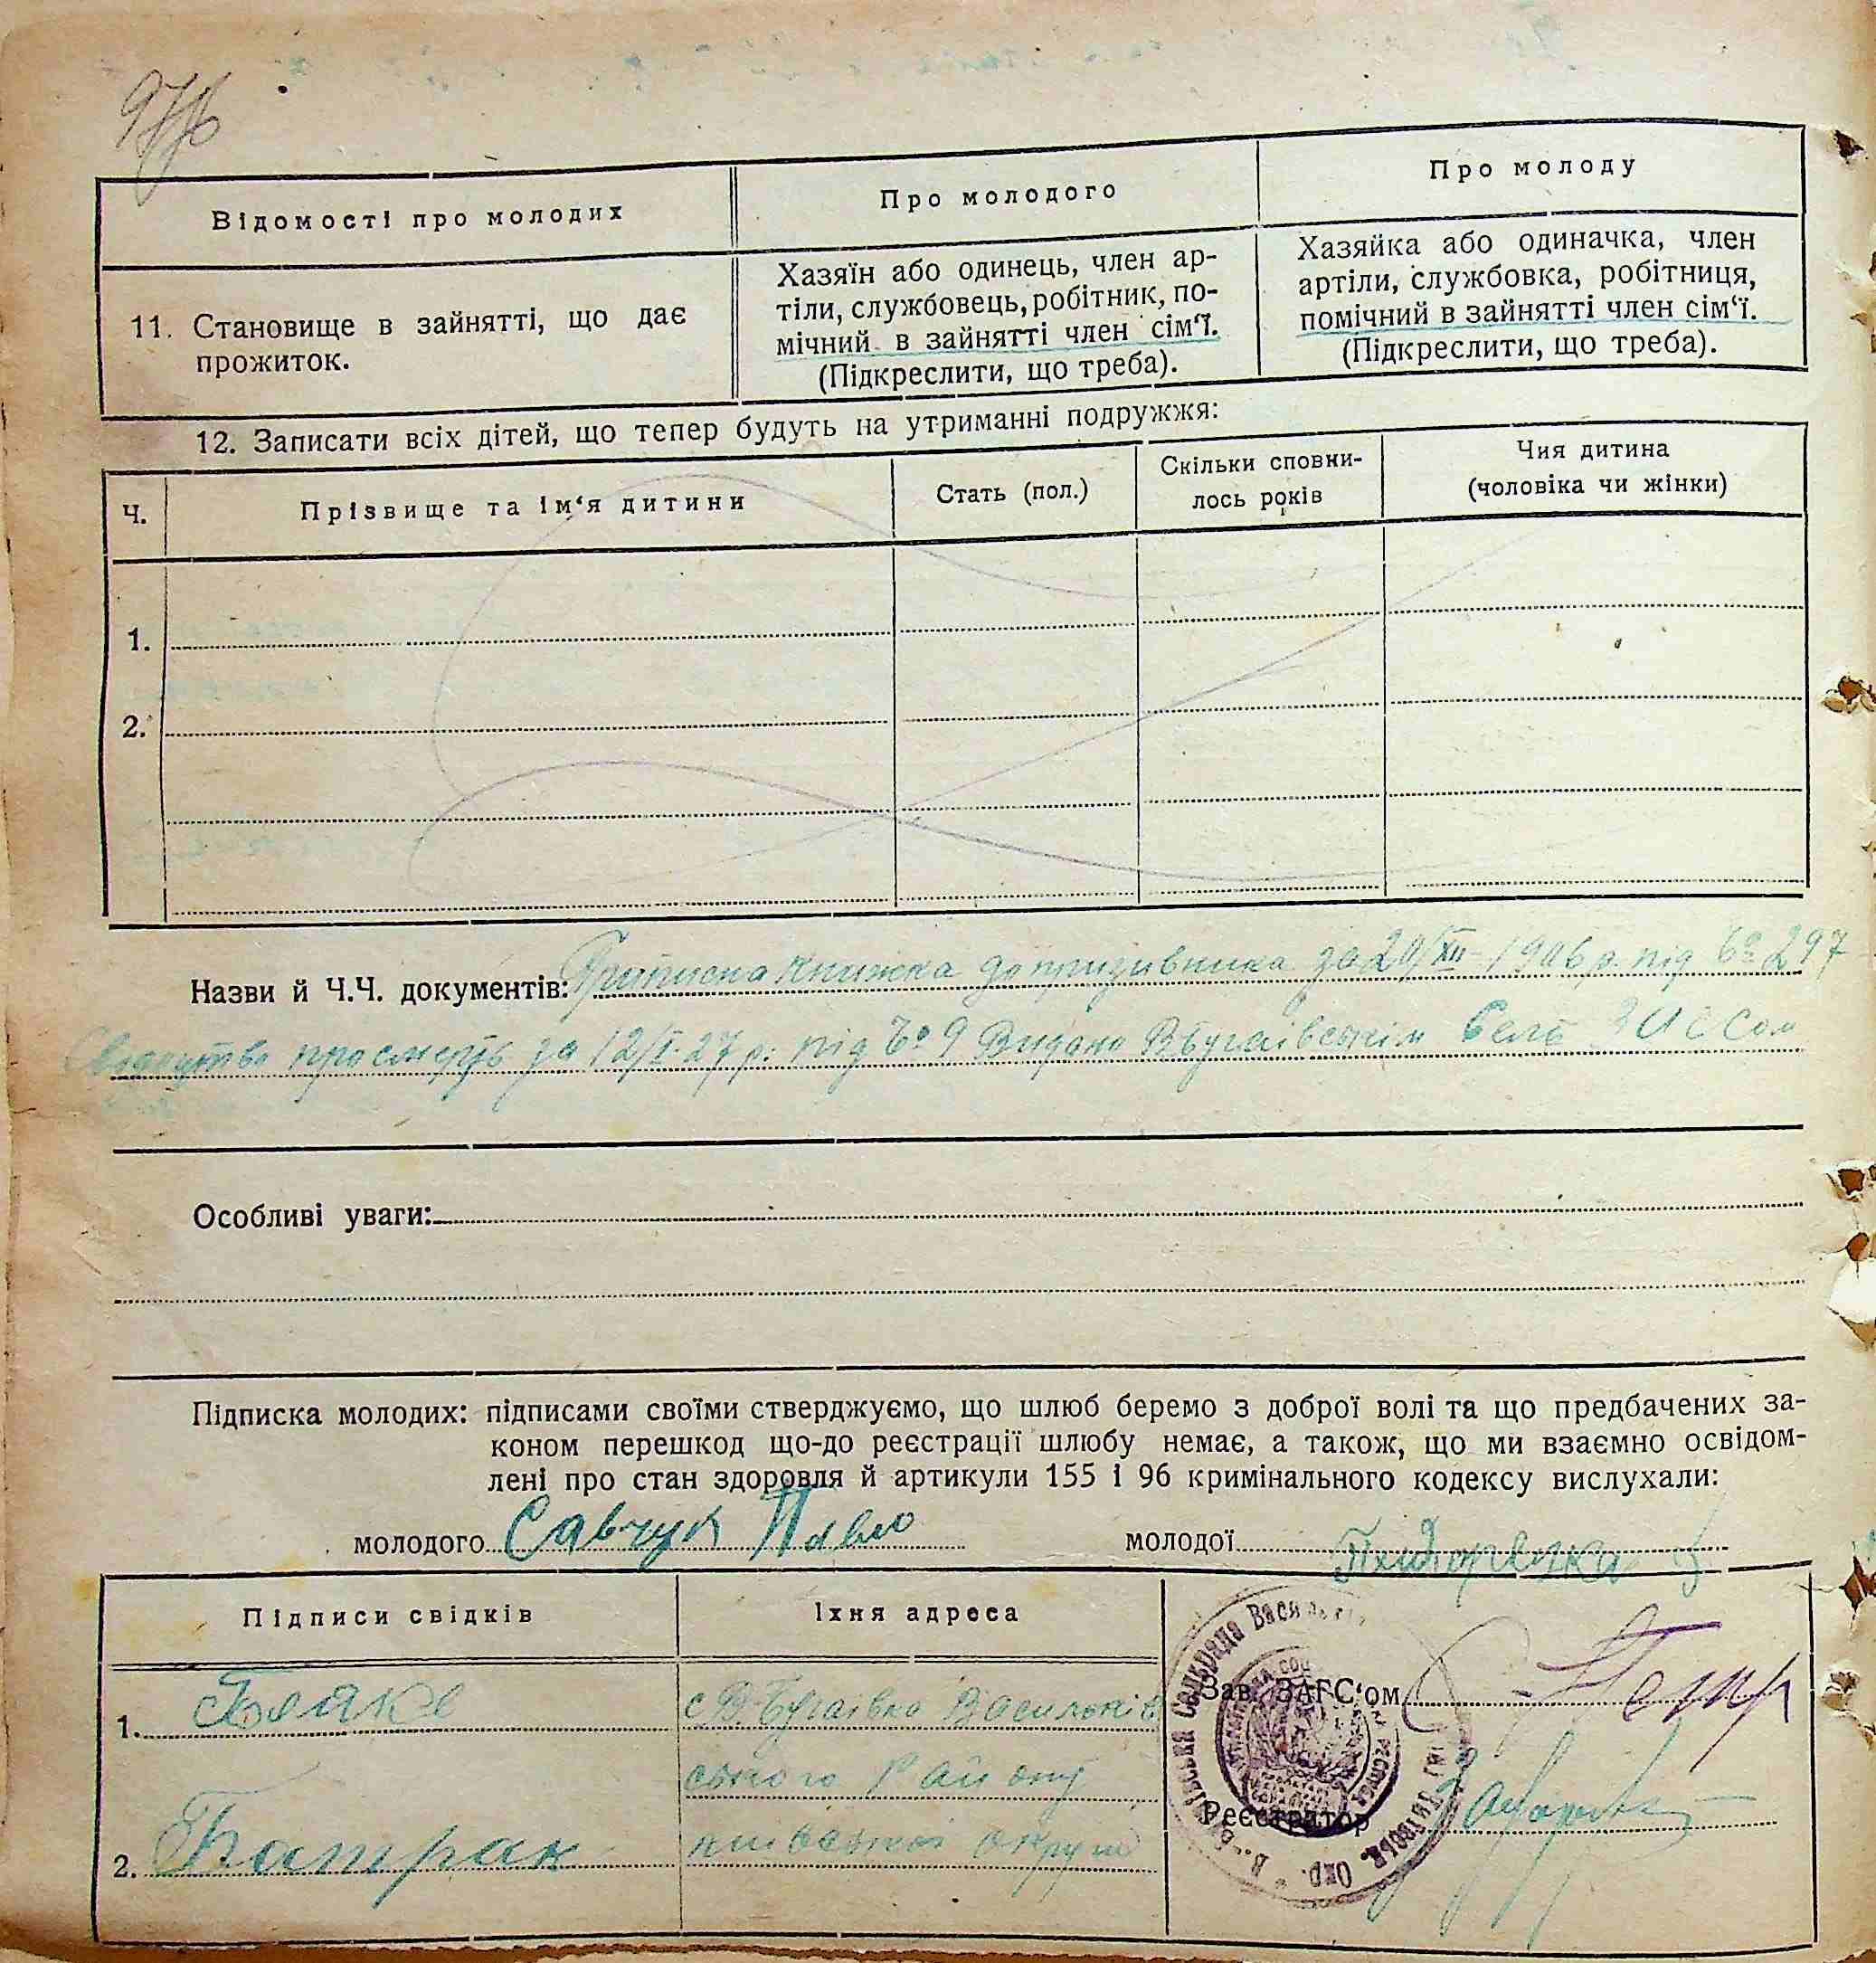 Відомості про молодих
Про молодого
Про молоду
11. Становище в зайнятті, що дає
прожиток.
Хазяїн або одинець, член ар-
тіли, службовець, робітник, по-
мічний в зайнятті член сім‘ї.
(Підкреслити, що треба).
Хазяйка або одиначка, член
артіли, службовка, робітниця,
помічний в зайнятті член сім‘ї.
(Підкреслити, що треба).
12. Записати всіх дітей, що тепер будуть на утриманні подружжя:
Ч.
Прізвище та ім‘я дитини
Стать (пол.)
Скільки сповни-
лось років
Чия дитина
(чоловіка чи жінки)
1.
2.
Назви й Ч.Ч. документів: Приписна книжка допризивника за 20/XII-1906 р. під Ч° 297
про смерть за 12/I-27 р. під Ч° 9 Видано ВБугаївським Сель ЗАГСом
Особливі уваги:
Підписка молодих: підписами своїми стверджуємо, що шлюб беремо з доброї волі та що предбачених за-
коном перешкод що-до реєстрації шлюбу немає, а також, що ми взаємно освідом-
лені про стан здоровля й артикули 155 і 96 кримінального кодексу вислухали:
молодого Савчук Павло
молодої
Підписи свідків
Їхня адреса
1.
с В-Бугаївка Васильків
ського Району
2. Батрак
київської округи
Зав. ЗАГС‘ом
Реєстратор